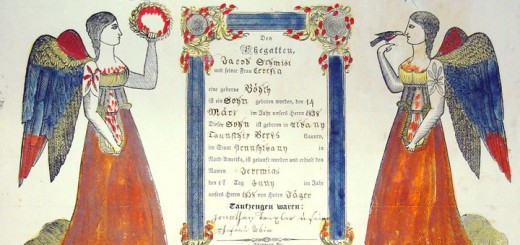 Den
Ehegatten,
Jacob Schmitt
und seiner Frau
eine geborne
ist ein Sohn geboren worden, den 14
März im Jahr unsers Herrn 1838
Dieser Sohn ist geboren in Albany
Taunschip Berks Caunty,
im Staat Pennsylvany in
Nord-Amerika, ist getauft worden und erhielt den
Namen Jeremias
den Tag Juny im Jahr
unsers Herrn 1838 von Herrn Jäger
Taufzeugen waren:
Jonathan